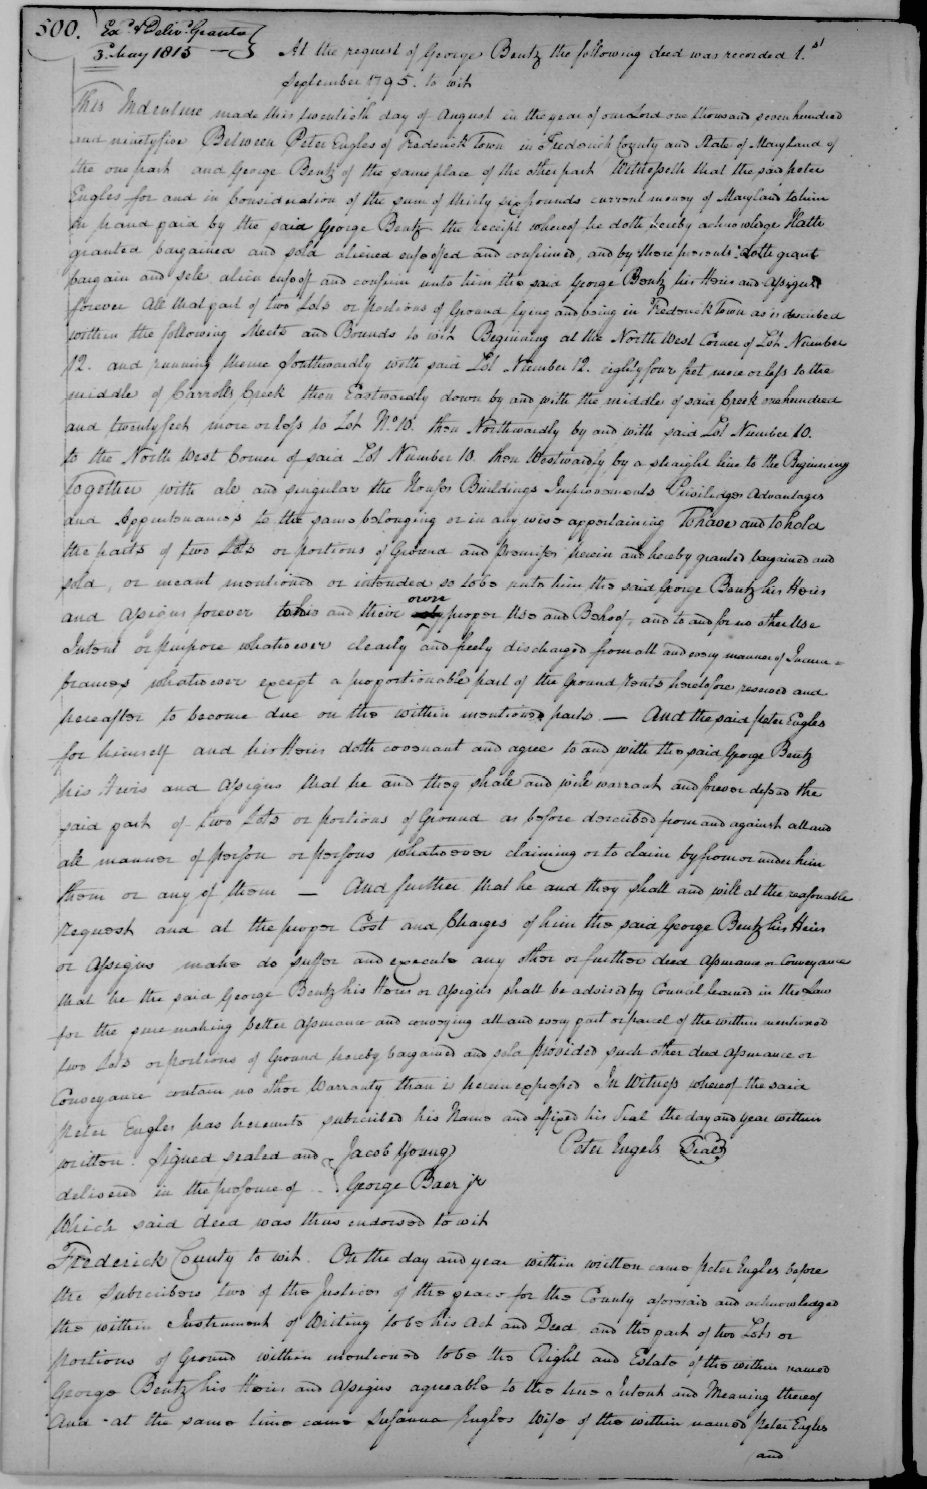 500. Exd. & Delivd. Grantee
3d. May 1815 — At the request of George Bentz the following deed was recorded 1.st
September 1795. to wit
This Indenture made this twentieth day of August in the year of our Lord one thousand seven hundred
and ninety five Between Peter Engles of Frederick Town in Frederick County and State of Maryland of
the one part and George Bentz of the same place of the other part Witnesseth that the said Peter
Engles for and in Consideration of the sum of thirty six pounds current money of Maryland to him
in hand paid by the said George Bentz the receipt whereof he doth hereby acknowledge Hath
granted bargained and sold aliened enfeoffed and confirmed, and by these presents Doth grant
bargain and sell alien enfeoff and confirm unto him the said George Bentz his Heirs and Assigns
forever All that part of two Lots or portions of Ground lying and being in Frederick Town as is described
within the following Meets and Bounds to wit Beginning at the North West Corner of Lot Number
12. and running thence Southwardly with said Lot Number 12. eighty four feet more or less to the
middle of Carrolls Creek then Eastwardly down by and with the middle of said Creek one hundred
and twenty feet more or less to Lot No. 10. then Northwardly by and with said Lot Number 10.
to the North West Corner of said Lot Number 10. then Westwardly by a straight line to the Beginning
Together with all and singular the Houses Buildings Improvements Priviledges Advantages
and Appurtenances to the same belonging or in any wise appertaining To have and to hold
the parts of two Lots or portions of Ground and Premises herein and hereby granted bargained and
sold, or meant mentioned or intended so to be unto him the said George Bentz his Heirs
and Assigns forever to his and their own proper Use and Behoof, and to and for no other Use
Intent or purpose whatsoever clearly and freely discharged from all and every manner of Incum=
brances whatsoever except a proportionable part of the Ground rents heretofore reserved and
hereafter to become due on the within mentioned parts — And the said Peter Engles
for himself and his Heirs doth covenant and agree to and with the said George Bentz
his Heirs and Assigns that he and they shall and will warrant and forever defend the
said part of two Lots or portions of Ground as before described from and against all and
all manner of person or persons whatsoever claiming or to claim by from or under him
them or any of them — And further that he and they shall and will at the reasonable
request and at the proper Cost and Charges of him the said George Bentz his Heirs
or Assigns make do suffer and execute any other or further deed Assurance or Conveyance
that he the said George Bentz his Heirs or Assigns shall be advised by Council learned in the Law
for the sure making better Assurance and conveying all and every part or parcel of the within mentioned
two Lots or portions of Ground hereby bargained and sold provided such other deed Assurance or
Conveyance contain no other Warranty than is herein expressed In Witness whereof the said
Peter Engles has hereunto subscribed his Name and affixed his Seal the day and year within
written. Signed sealed and Jacob Young Peter Engels Seal
delivered in the presence of .. George Baer jr
Which said deed was thus endorsed to wit
Frederick County to wit. On the day and year within written came Peter Engles before
the Subscribers two of the Justices of the peace for the County aforesaid and acknowledged
the within Instrument of Writing to be his Act and Deed and the part of two Lots or
portions of Ground within mentioned to be the Right and Estate of the within named
George Bentz his Heirs and Assigns agreeable to the true Intent and Meaning thereof
And at the same time came Susanna Engles Wife of the within named Peter Engles
and